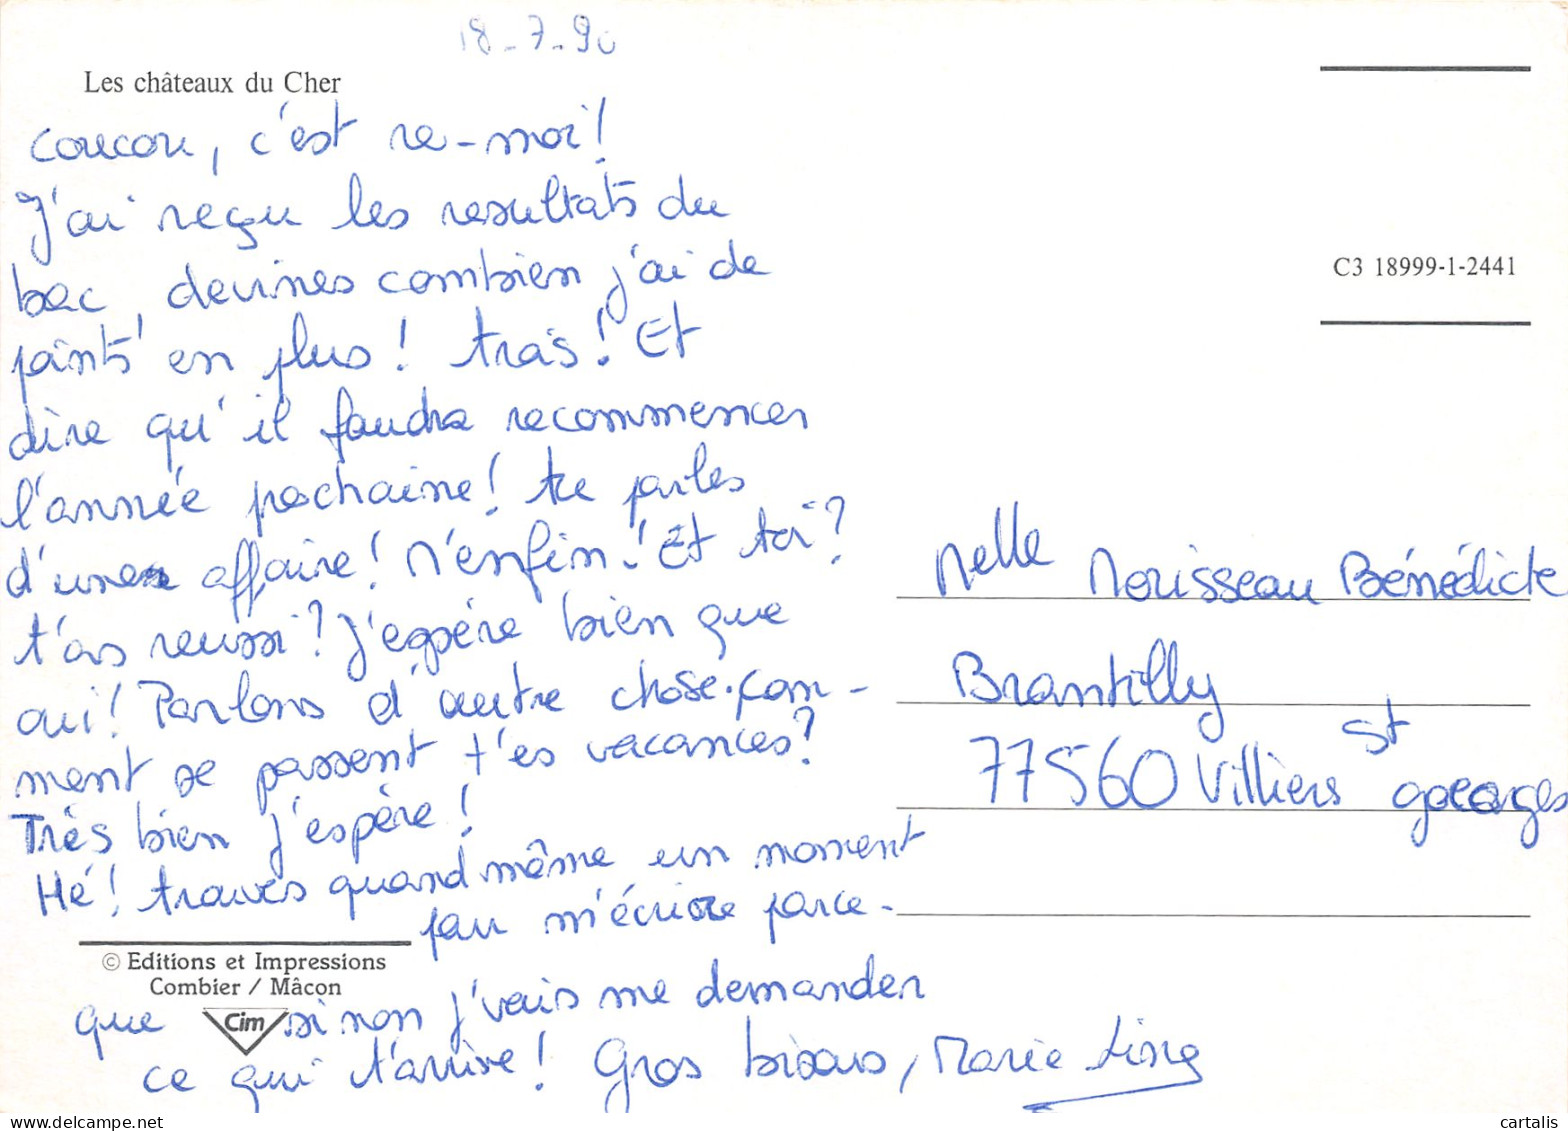 18-7-90
Les châteaux du Cher
coucou, c'est re-moi!
J'ai reçu les resultats du
bac, devines combien j'ai de
points en plus! trois! Et
dire qu'il faudra recommencer
l'année pochaine! tu parles
d'une affaire! M'enfin! Et toi?
t'as reussi? J'espére bien que
oui! Parlons d'autre chose. Com-
ment se passent t'es vacances?
Très bien j'espère!
Hé! trouves quand même un moment
pour m'écrire parce-
que sinon j'vais me demander
ce qui t'arrive! Gros bisous, Marie Line
© Editions et Impressions
Combier / Mâcon
Cim
C3 18999-1-2441
Melle Morisseau Bénédicte
Brantilly
77560 Villiers St georges
cartalis